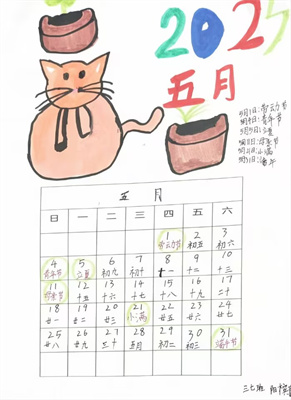 2025
五月
5月1日:劳动节
5月4日:青年节
5月5日:立夏
5月11日:母亲节
5月21日:小满
5月31日:端午
五月
日 一 二 三 四 五 六
1 2 3
劳动节 初五 初六
4 5 6 7 8 9 10
青年节 立夏 初九 初十 十一 十二 十三
11 12 13 14 15 16 17
母亲节 十五 十六 十七 十八 十九 二十
18 19 20 21 22 23 24
廿一 廿二 廿三 小满 廿五 廿六 廿七
25 26 27 28 29 30 31
廿八 廿九 三十 五月 初二 初三 端午节
三七班